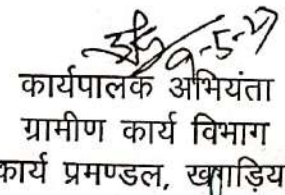 कार्यपालक अभियंता
ग्रामीण कार्य विभाग
कार्य प्रमण्डल, खगाड़िय